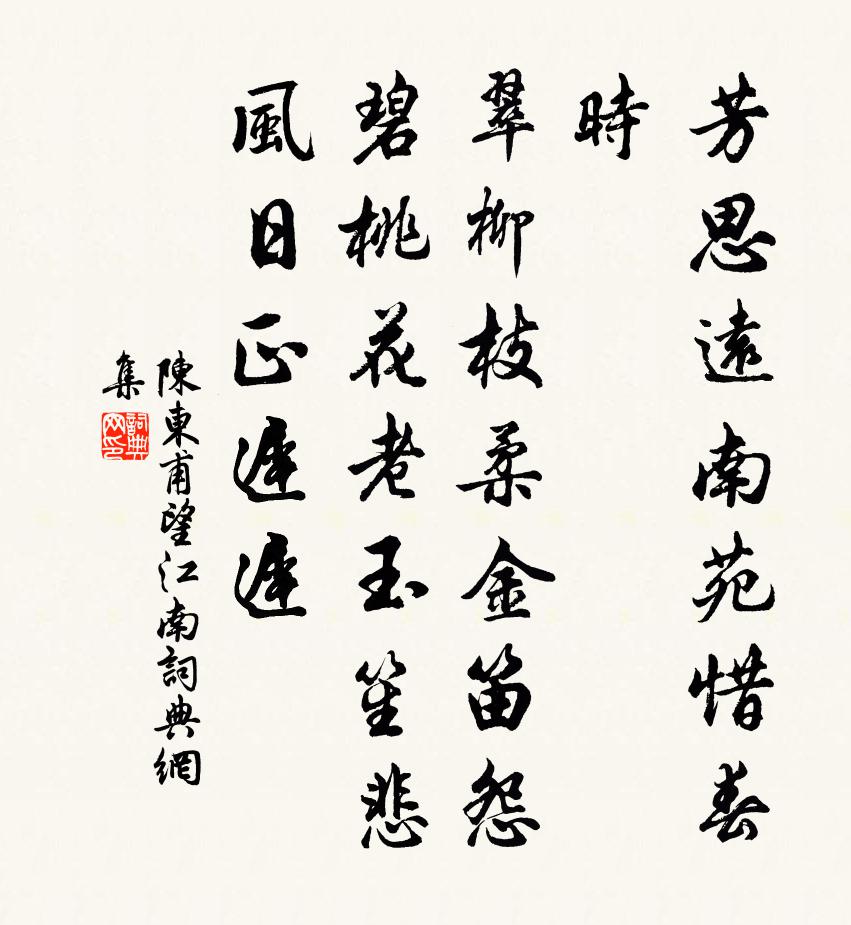 芳思遠南苑惜春
時
翠柳枝柔金笛怨
碧桃花老玉笙悲
風日正遲遲
陳東甫望江南詞典網
集
詞典網印